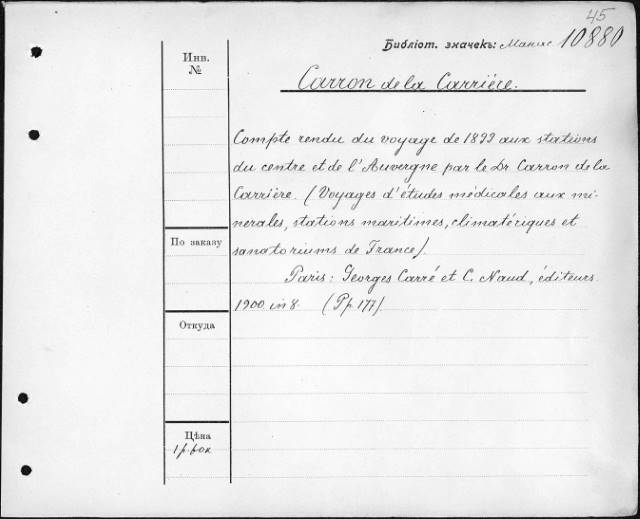 45
Библіот. значекъ: 10880
Инв.
№
Carron de la Carriére.
Compte rendu du voyage de 1899 aux stations
du centre et de l'Auvergne par le Dr Carron de la
Carrière. (Voyages d'études médicales aux mi-
nerales, stations maritimes, climatériques et
sanatoriums de France).
По заказу
Paris: Georges Carré et C. Naud, éditeurs.
1900 in 8. (Pp. 177).
Откуда
Цѣна